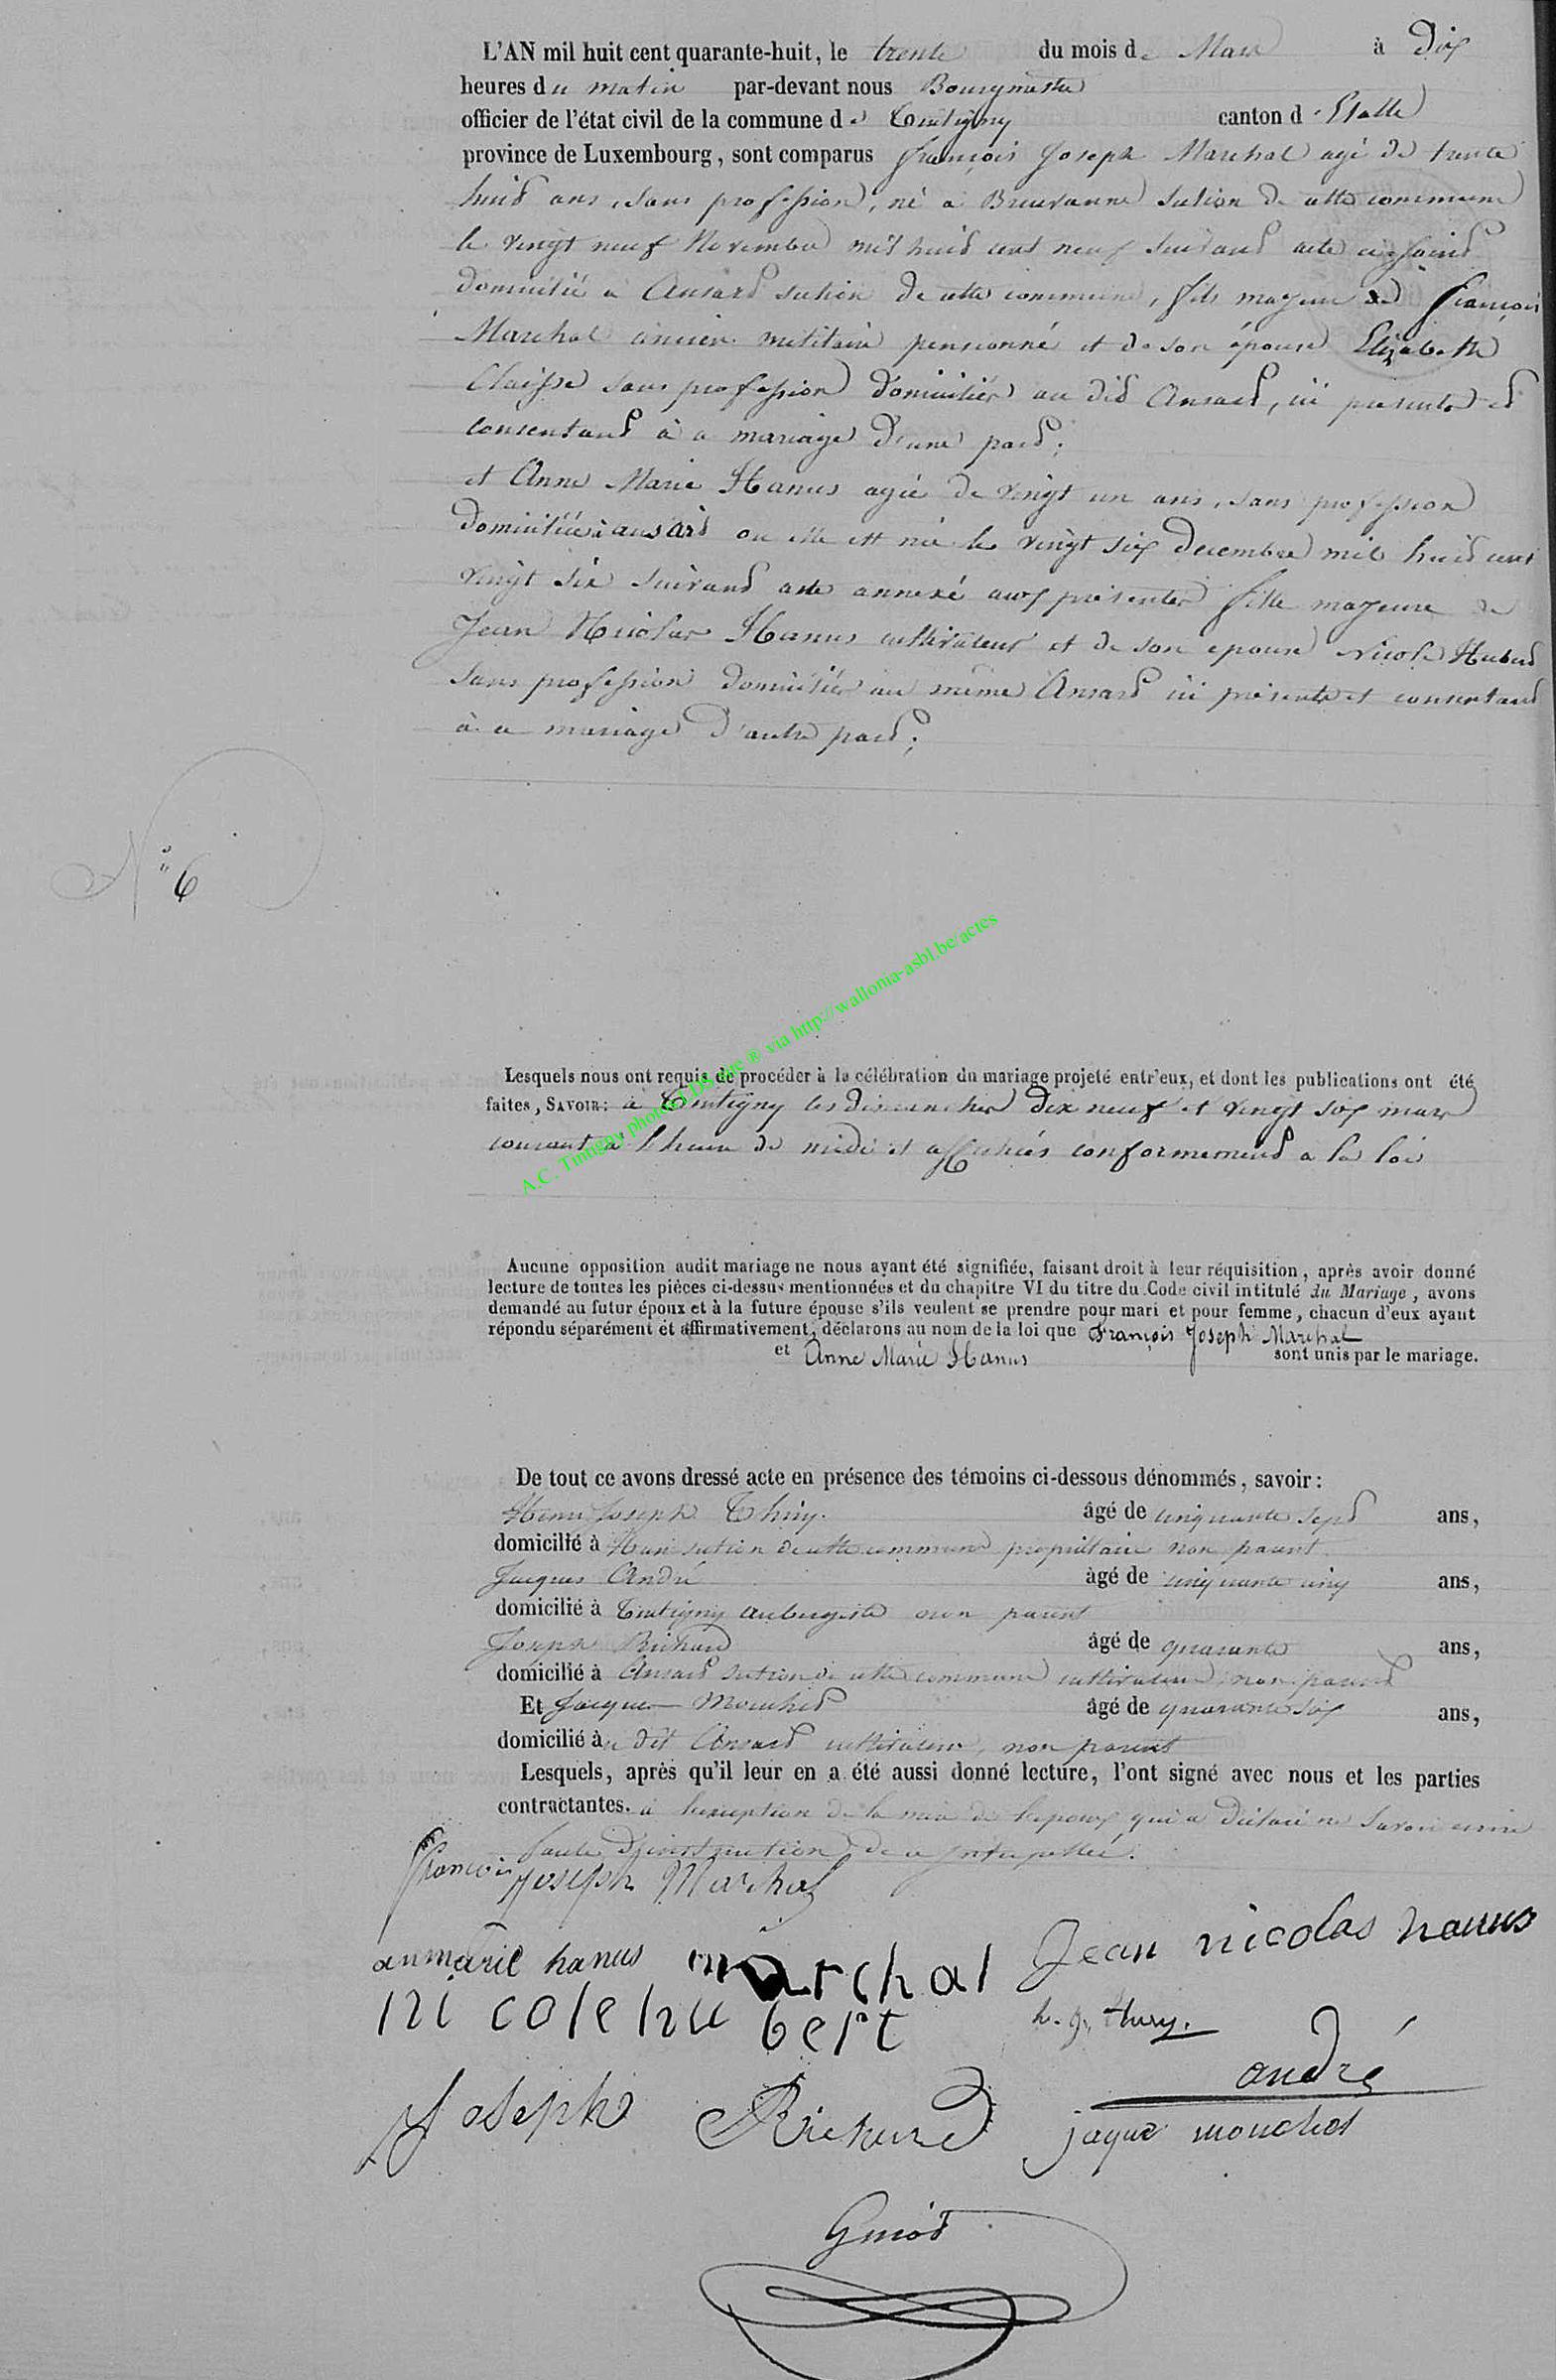 L'AN mil huit cent quarante-huit, le trente du mois de Mars à Dix
heures du matin par-devant nous Bourgmestre
officier de l'état civil de la commune de Tintigny canton d'Etalle
province de Luxembourg, sont comparus françois Joseph Marchal agé de trente
huit ans, sans profession, né à Breuvanne section de cette commune
le vingt neuf Novembre mil huit cent neuf suivant acte ci joint
domicilié à Ansart section de cette commune, fils majeur de françois
Marchal ancien militaire pensionné et de son épouse Elizabeth
Claisse sans profession domiciliés au dit Ansart, ici présents et
consentant à ce mariage d'une part;
et Anne Marie Hanus agée de vingt un ans, sans profession
domiciliée à ansart ou elle est née le vingt six decembre mil huit cent
vingt six suivant acte annexé aux présentes fille majeure de
Jean Nicolas Hanus cultivateur et de son epouse Nicole Hubert
sans profession domiciliés au même Ansart ici présents et consentant
à ce mariage d'autre part;
N° 6
Lesquels nous ont requis de procéder à la célébration du mariage projeté entr'eux, et dont les publications ont été
faites, SAVOIR: à Tintigny les dimanches dix neuf et vingt six mars
courant à l'heure de midi et affichés conformement a la loi
A.C. Tintigny photos LDS ® via http://wallonia-asbl.be/actes
Aucune opposition audit mariage ne nous ayant été signifiée, faisant droit à leur réquisition, après avoir donné
lecture de toutes les pièces ci-dessus mentionnées et du chapitre VI du titre du Code civil intitulé du Mariage, avons
demandé au futur époux et à la future épouse s'ils veulent se prendre pour mari et pour femme, chacun d'eux ayant
répondu séparément et affirmativement, déclarons au nom de la loi que François Joseph Marchal
et Anne Marie Hanus sont unis par le mariage.
De tout ce avons dressé acte en présence des témoins ci-dessous dénommés, savoir:
Henri Joseph Thiry. âgé de cinquante sept ans,
domicilié à Han section de cette commune propriétaire non parent
Jacques André âgé de cinquante cinq ans,
domicilié à Tintigny aubergiste non parent
Joseph Richard âgé de quarante ans,
domicilié à Ansart section de cette commune cultivateur, non parent
Et Jacques Mouchet âgé de quarante six ans,
domicilié au dit Ansart cultivateur, non parent
Lesquels, après qu'il leur en a été aussi donné lecture, l'ont signé avec nous et les parties
contractantes. à l'exception de la mère de l'epoux qui a déclaré ne savoir écrire
faute d'instruction de ce interpellée.
françois Joseph Marchal
anmarie hanus marchal Jean nicolas hanus
nicole hubert h. j. thiry.
andré
Joseph Richard jaque mouchet
Guiot